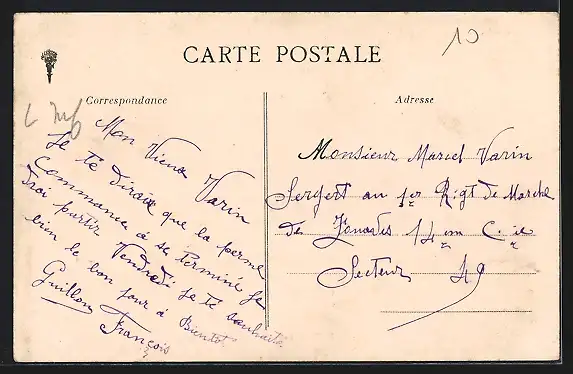 10
CARTE POSTALE
Correspondance
Adresse
Mon Vieux Varin
Je te dirais que la perme
commance a se terminé Je
Doai partir Vendredi Je te souhaite
bien le bon jour à Bientot
Guillon
François
Monsieur Marcel Varin
Sergert au 1er Rigt de Marche
de Zouaves 14 em C.ie
Secteur 49